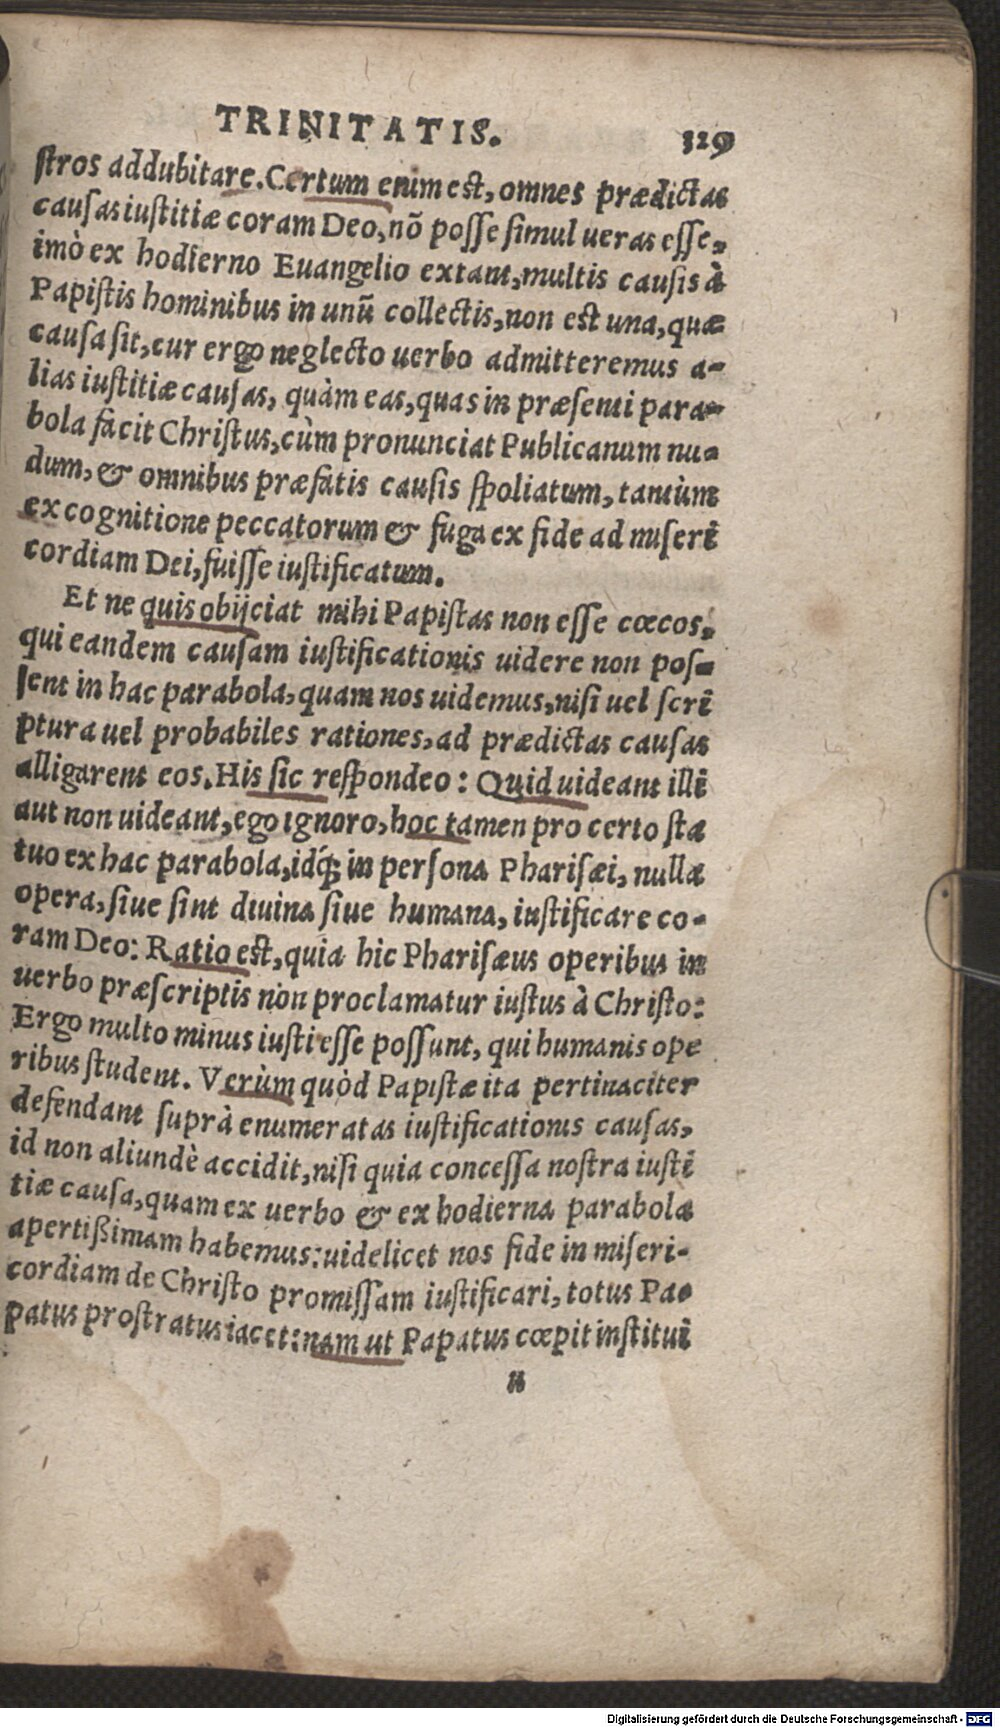 TRINITATIS. 329
ſtros addubitare. Certum enim est, omnes prædictas
cauſas iuſtitiæ coram Deo, nõ poſſe ſimul ueras eſſe,
imò ex hodierno Euangelio extant, multis cauſis à
Papiſtis hominibus in unũ collectis, non est una, quæ
cauſa ſit, cur ergo neglecto uerbo admitteremus a-
lias iuſtitiæ cauſas, quàm eas, quas in præſenti para-
bola facit Chriſtus, cùm pronunciat Publicanum nu-
dum, & omnibus præfatis cauſis ſpoliatum, tantùm
ex cognitione peccatorum & fuga ex fide ad miſeri
cordiam Dei, fuiſſe iuſtificatum.
Et ne quis obijciat mihi Papiſtas non eſſe cœcos,
qui eandem cauſam iuſtificationis uidere non poſ-
ſent in hac parabola, quam nos uidemus, niſi uel ſcri
ptura uel probabiles rationes, ad prædictas cauſas
alligarent eos. His ſic reſpondeo: Quid uideant illi
aut non uideant, ego ignoro, hoc tamen pro certo ſta
tuo ex hac parabola, idq́; in perſona Phariſæi, nulla
opera, ſiue ſint diuina ſiue humana, iuſtificare co-
ram Deo: Ratio est, quia hic Phariſæus operibus in
uerbo præſcriptis non proclamatur iuſtus à Chriſto:
Ergo multo minus iuſti eſſe poſſunt, qui humanis ope
ribus ſtudent. Verùm quòd Papiſtæ ita pertinaciter
defendant ſuprà enumeratas iuſtificationis cauſas,
id non aliundè accidit, niſi quia conceſſa noſtra iuſti
tiæ cauſa, quam ex uerbo & ex hodierna parabola
apertißimam habemus: uidelicet nos fide in miſeri-
cordiam de Chriſto promiſſam iuſtificari, totus Pa-
patus proſtratus iacet: nam ut Papatus cœpit inſtitui
u
Digitalisierung gefördert durch die Deutsche Forschungsgemeinschaft - DFG